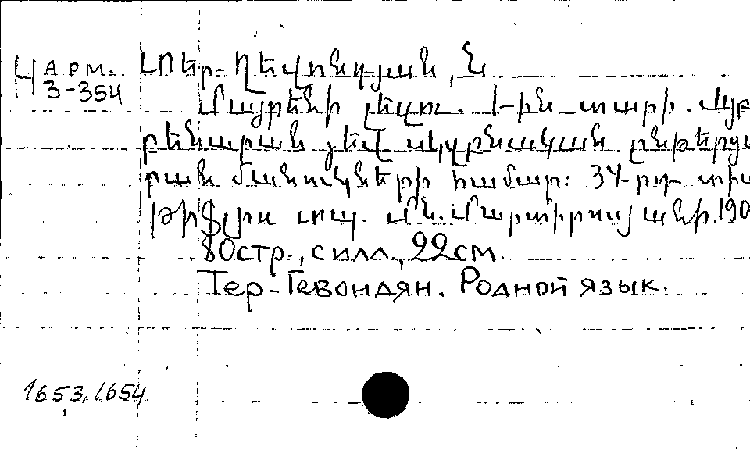 Ч АРМ.
3-354
Տեր-Ղեվոնդյան, Ն
Մայրենի լեզու. 1-ին տարի. Այբ
բենարան յեվ սկզբնական ընթերցա
րան մանուկների համար: 34-րդ տիպ
Թիֆլիս տպ. Մն. Մարտիրոսյանի. 190
80стр., с илл., 22см.
Тер-Гевондян. Родной язык.
1653, 1654